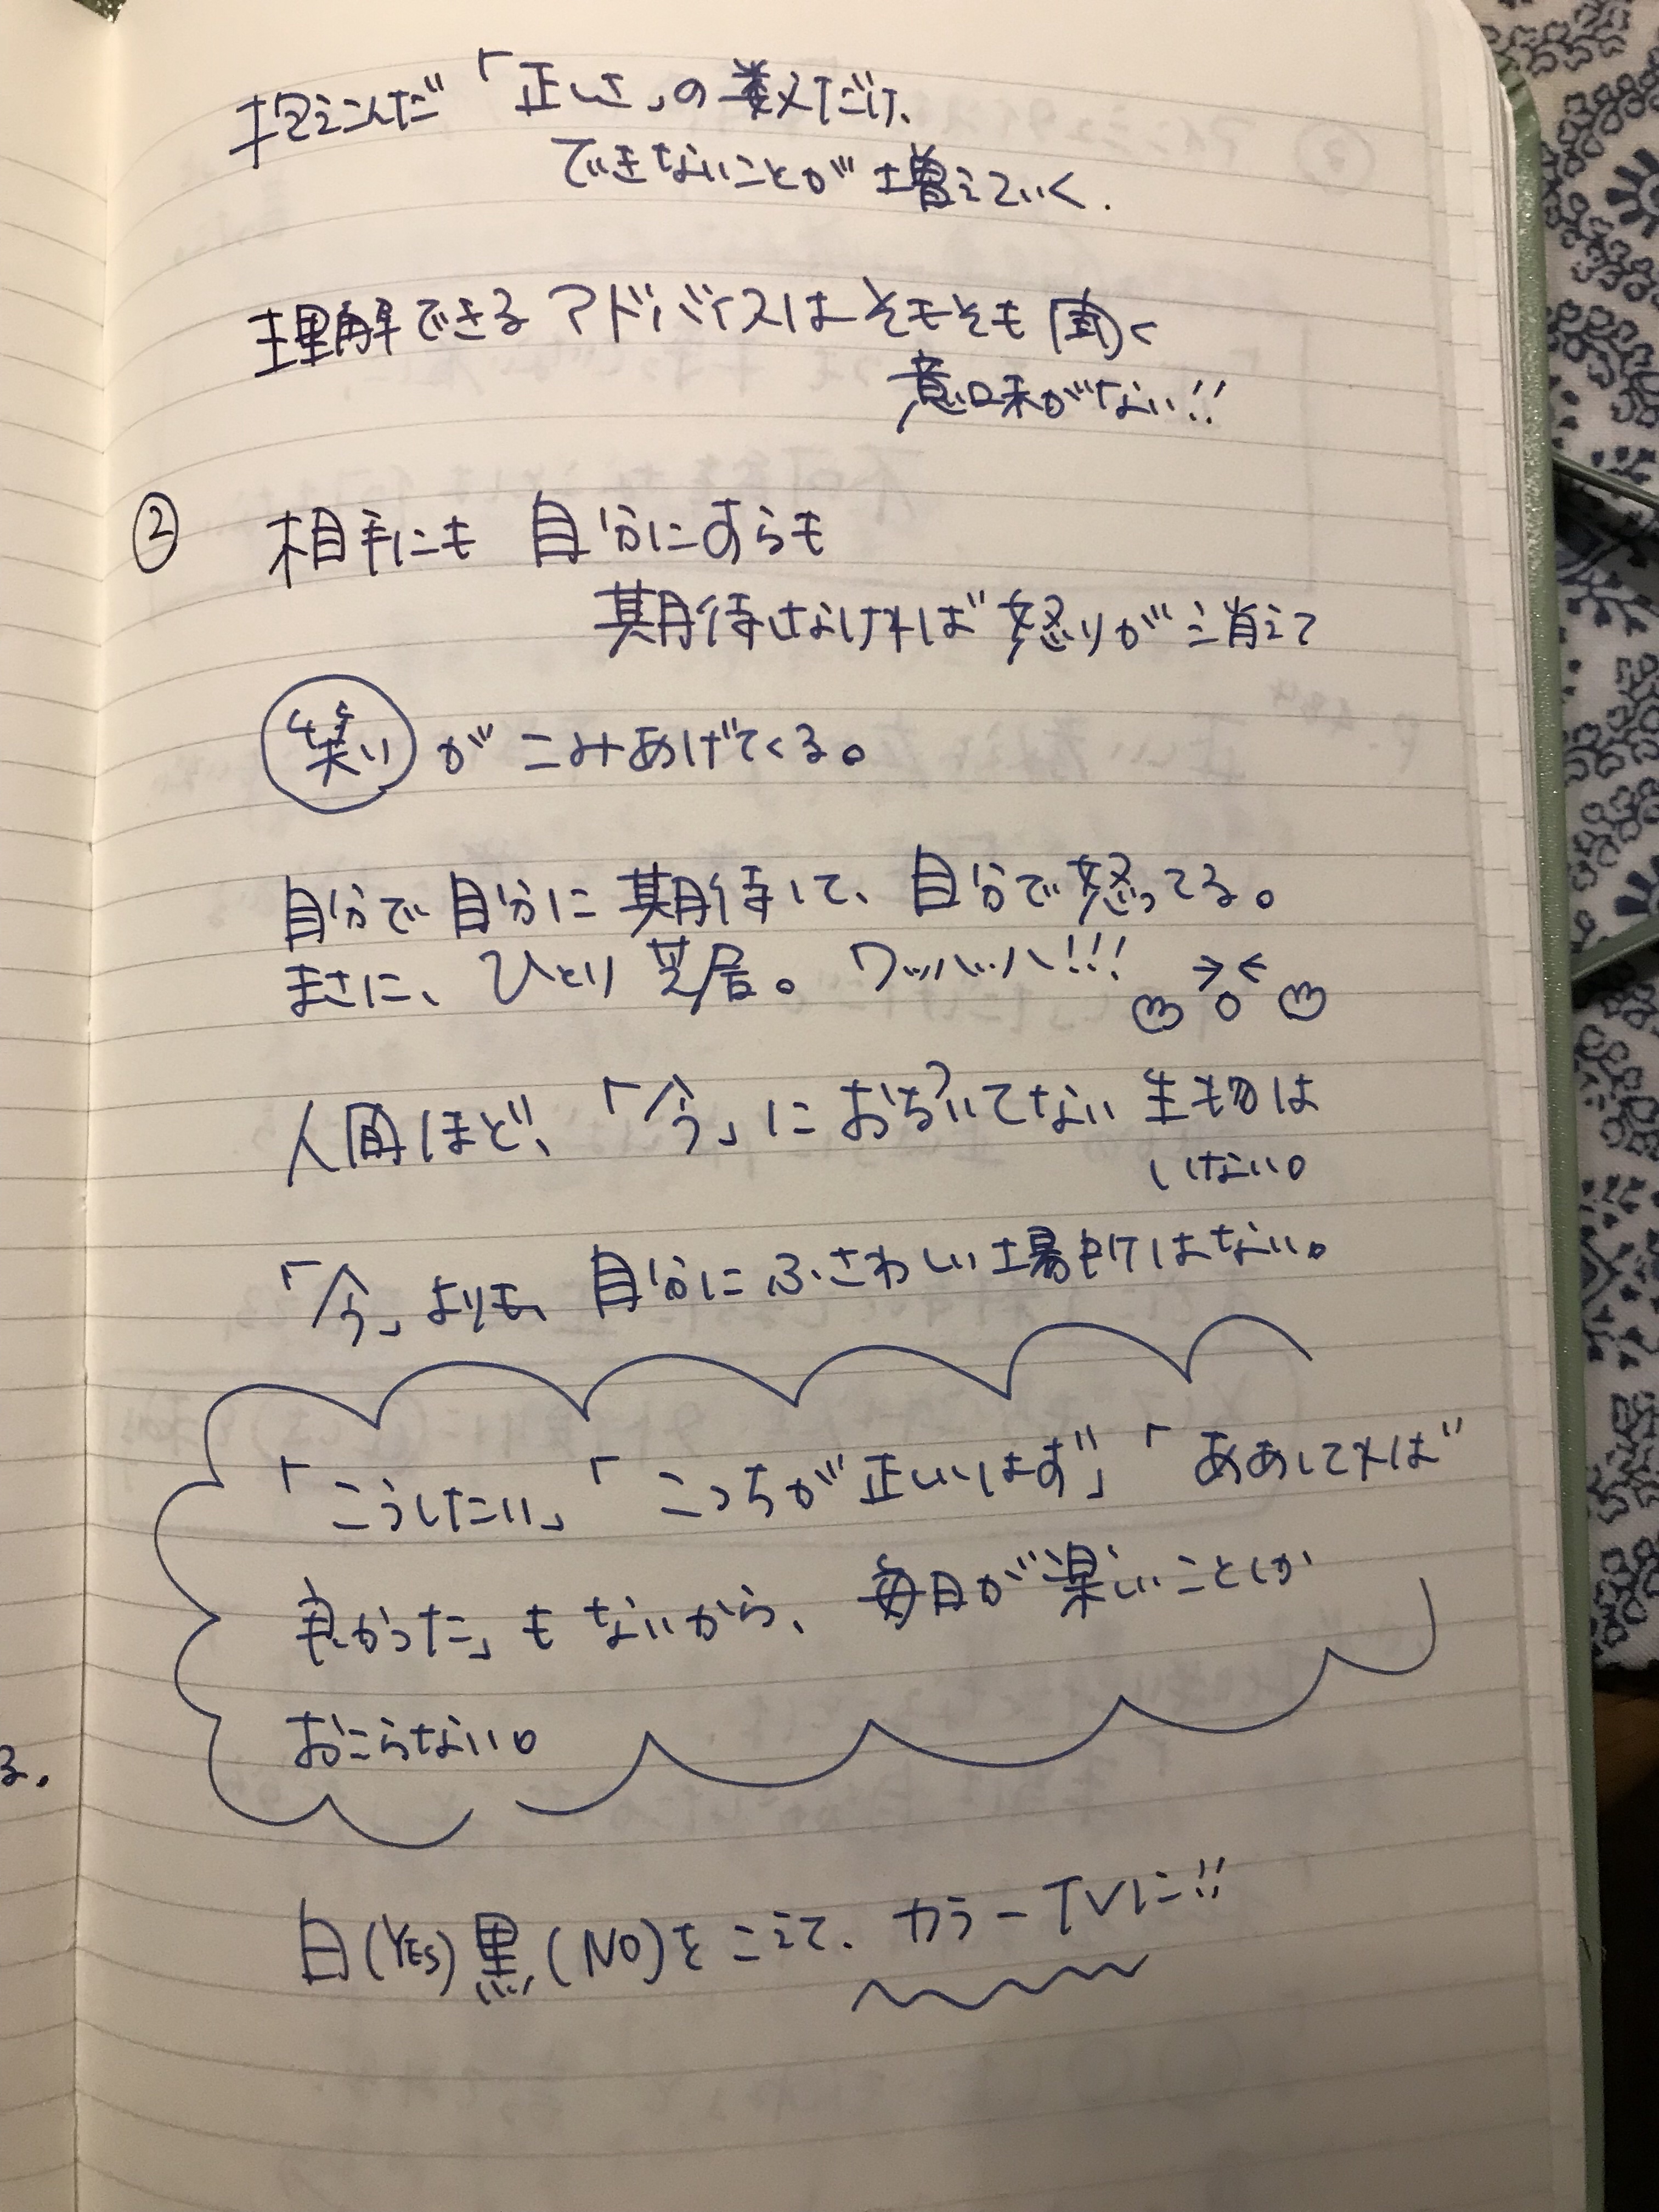 抱えこんだ「正しさ」の数だけ、
できないことが増えていく.
理解できるアドバイスはそもそも聞く
意味がない!!
② 相手にも 自分にすらも
期待しなければ 怒りが消えて
笑いがこみあげてくる。
自分で自分に期待して、自分で怒ってる。
まさに、ひとり芝居。ワッハッハ!!!
人間ほど、「今」におちついてない生物は
いない。
「今」よりも、自分にふさわしい場所はない。
「こうしたい」「こっちが正しいはず」「ああしてれば
良かった」もないから、毎日が楽しいことしか
おこらない。
る.
白(YES)黒(NO)をこえて、カラーTVに!!